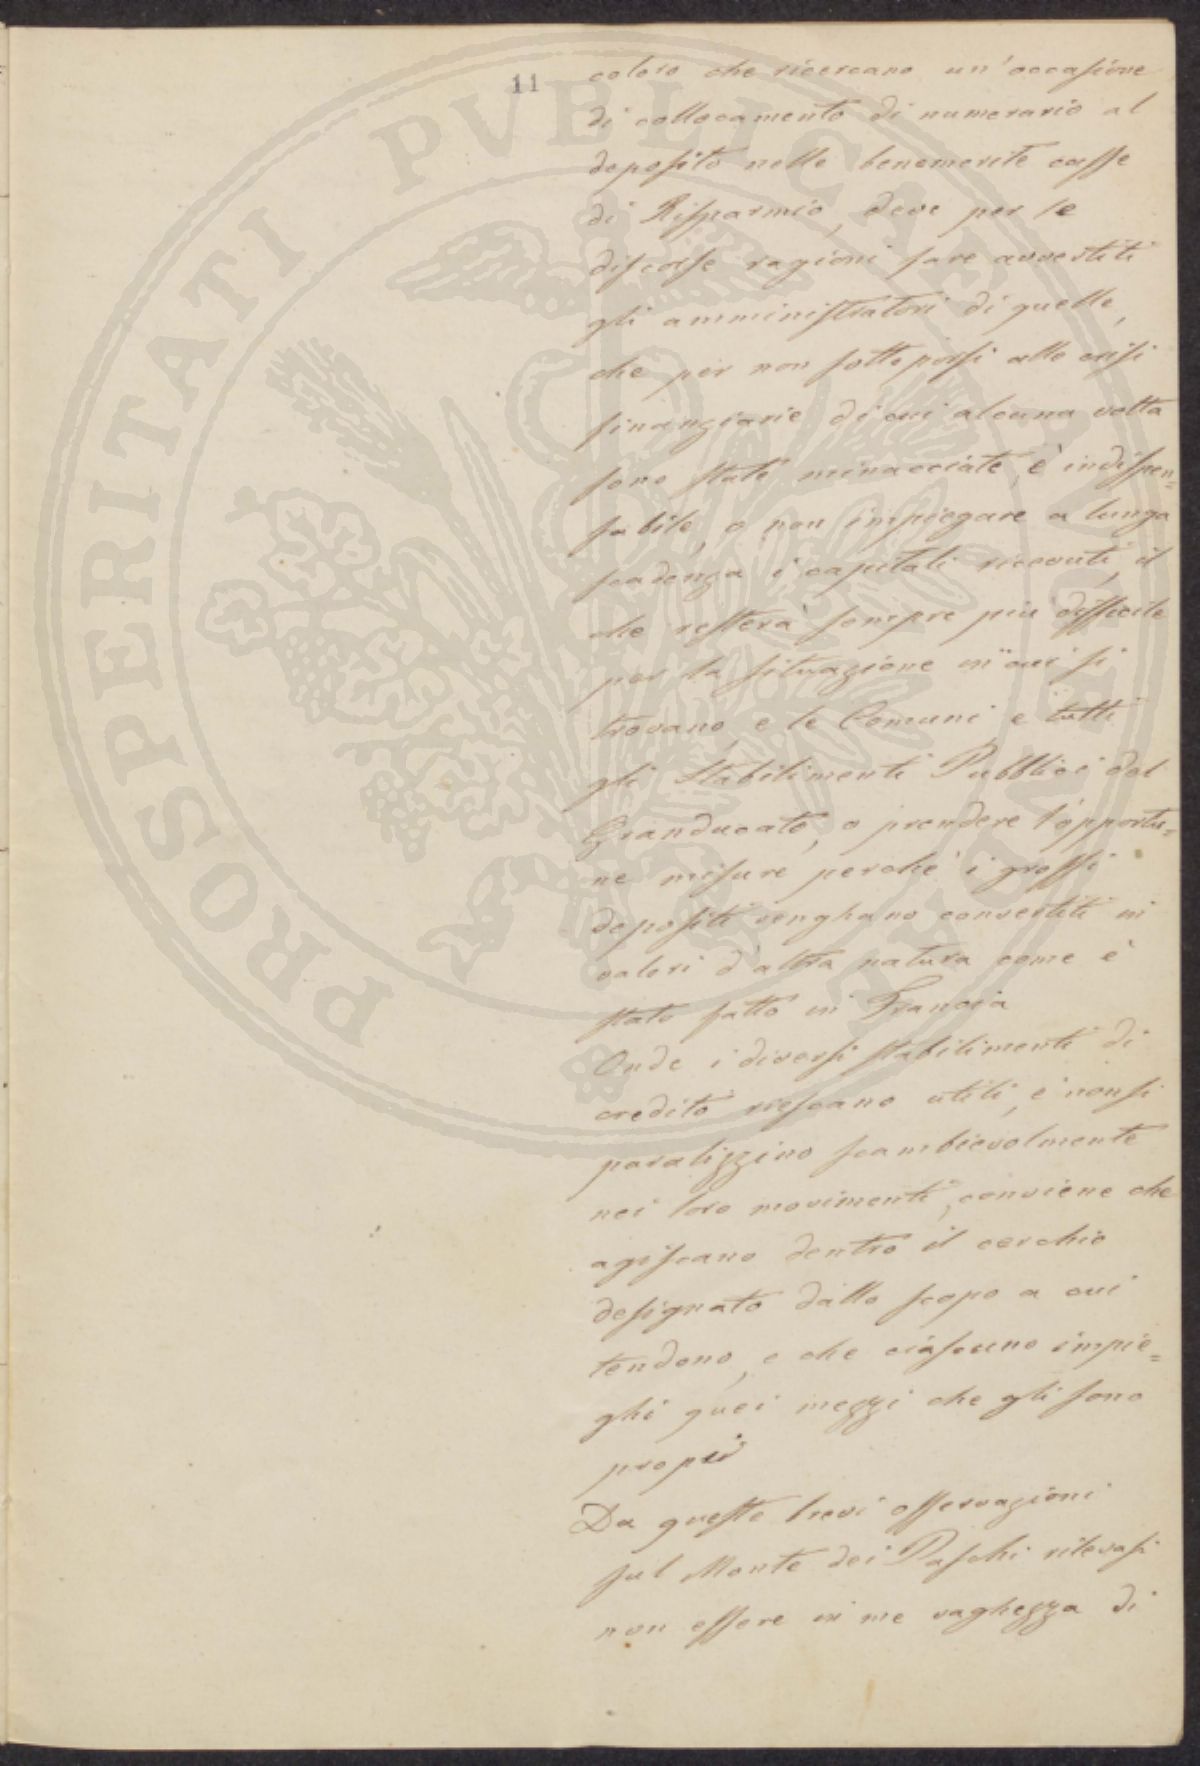 11
coloro che ricercano un'occasione
di collocamento di numerario al
deposito nelle benemerite casse
di Risparmio, deve per le
discorse ragioni fare avvertiti
gli amministratori di quelle,
che per non sottoporsi alle crisi
finanziarie di cui alcuna volta
sono state minacciate, è indispen=
sabile, o non impiegare a lunga
scadenza i capitali ricevuti, il
che resterà sempre più difficile
per la situazione in cui si
trovano, e le Comuni e tutti
gli Stabilimenti Pubblici del
Granducato, o prendere l'opportu=
ne misure perchè i grossi
depositi venghano convertiti in
valori d'altra natura come è
stato fatto in Francia
Onde i diversi stabilimenti di
credito riescano utili, e non si
paralizzino scambievolmente
nei loro movimenti, conviene che
agiscano dentro il cerchio
designato dallo scopo a cui
tendono, e che ciascuno impie=
ghi quei mezzi che gli sono
propri
Da queste brevi osservazioni
sul Monte dei Paschi rilevasi
non essere in me vaghezza di
PROSPERITATI PVBLICAE